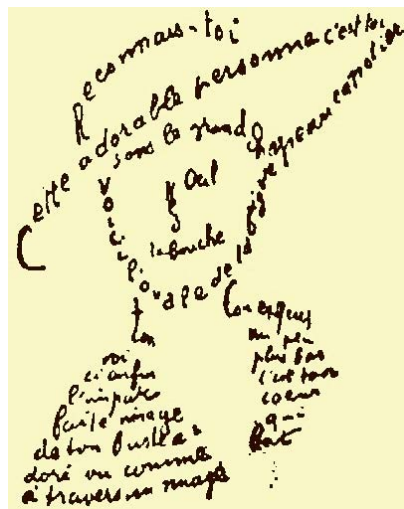 Reconnais-toi
Cette adorable personne c'est toi
Sous le grand chapeau canotier
Oeil
la bouche
Voici l'ovale de ta figure
Ton
Cou exquis
voi
ci enfin
l'impar
faite image
de ton buste a
doré vu comme
à travers un nuage
un peu
plus bas
c'est ton
coeur
qui
bat